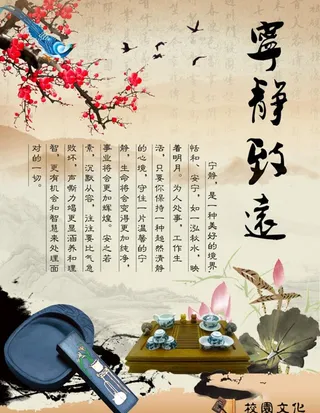 寧靜致遠
宁静，是一种美好的境界
恬和、安宁，如一泓秋水，映
着明月。为人处事，工作生
活，只要你保持一种超然清静
的心境，守住一片温馨的宁
静，生命将会变得更加纯净，
事业将会更加辉煌。安之若
素，沉默从容，往往要比气急
败坏，声嘶力竭更显涵养和理
智，更有机会和智慧来处理面
对的一切。
校園文化